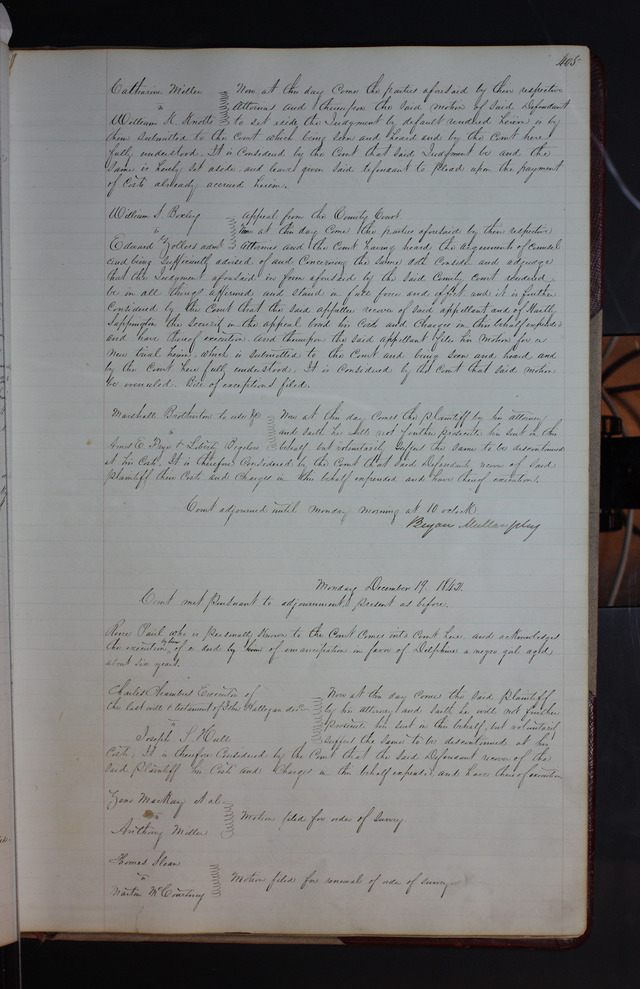 405
Catharine Miller Now at this day Come the parties aforesaid by their respective
vs Attornies and thereupon the said motion of said Defendant
William K. Knotts to set aside the Judgment by default rendered herein is by
them submitted to the Court which being seen and heard and by the Court here
fully understood. It is Considered by the Court that said Judgment be and the
same is hereby set aside and leave given said defendant to plead upon the payment
of Costs already accrued herein.
William S. Boxley Appeal from the County Court
vs Now at this day Come the parties aforesaid by their respective
Edward Zollers admr Attornies and the Court having heard the arguments of Counsel
and being sufficiently advised of and Concerning the same doth Consider and adjudge
that the Judgment aforesaid in form aforesaid by the said County Court rendered
be in all things affirmed and stand in full force and effect and it is further
Considered by the Court that the said appellee recover of said appellant and of
Sappington the security in the appeal bond his Costs and Charges in this behalf expended
and have thereof execution. And thereupon the said appellant files his motion for a
new trial herein which is submitted to the Court and being seen and heard and
by the Court here fully understood. It is Considered by the Court that said motion
be overruled. Bill of exceptions filed.
Marshall Brotherton to use &c Now at this day Comes the plaintiff by his attorney
vs and saith he will not further prosecute his suit in this
E. Page & Liberty Bigelow behalf but voluntarily suffers the same to be discontinued
at his Costs. It is therefore Considered by the Court that said Defendants recover of said
Plaintiff their Costs and Charges in this behalf expended and have thereof execution.
Court adjourned until Monday morning at 10 oclock
Bryan Mullanphy
Monday December 19. 1842.
Court met pursuant to adjournment. Present as before.
Paul who is personally known to the Court Comes into Court here and acknowledges
the execution by him of a deed by him of emancipation in favor of Delphine a negro girl aged
about six years.
Charles Chambers Executor of Now at this day come the said Plaintiff
the last will & testament of John Halligan decd by his attorney and saith he will not further
vs prosecute his suit in this behalf, but voluntarily
Joseph S. Hull suffers the same to be discontinued at his
Costs. It is therefore Considered by the Court that the said Defendant recover of the
said Plaintiff his Costs and Charges in this behalf expended and have thereof execution
Zeno Mackay et al
vs Motion filed for order of Survey
Anthony Miller
Thomas Sloan
vs Motion filed for renewal of order of Survey
McCourtney